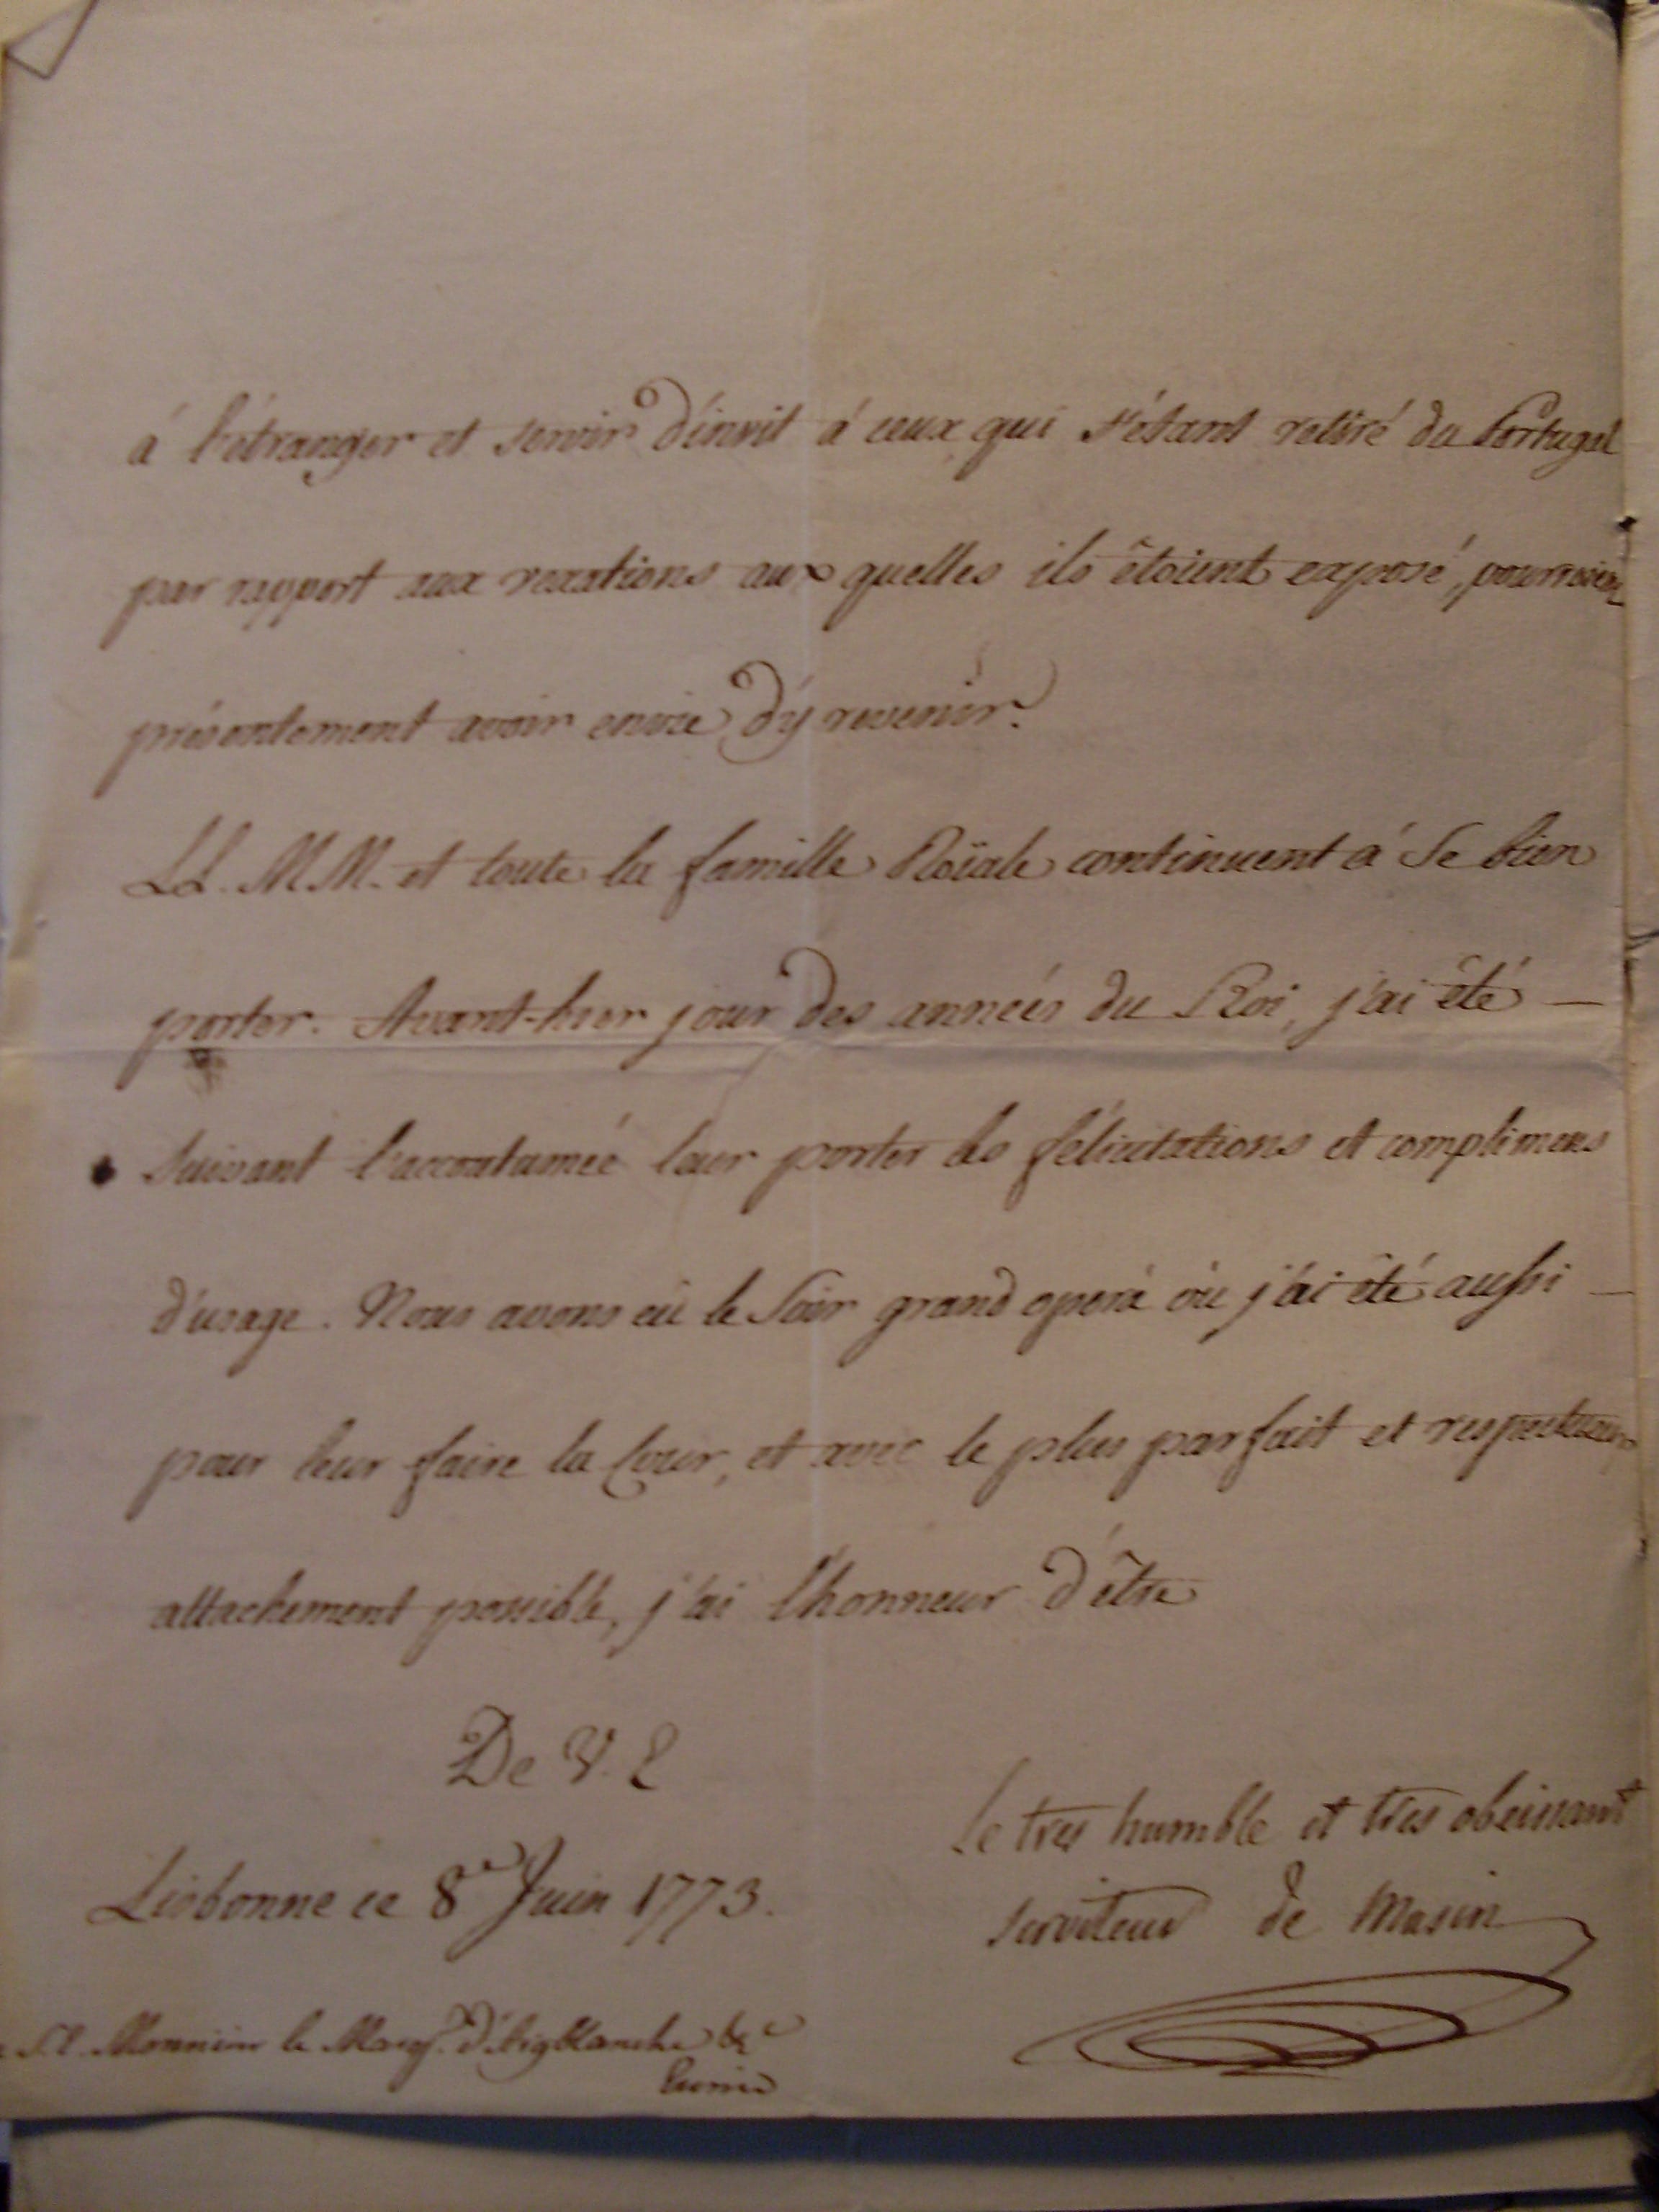 á l'étranger et servir d'invit á ceux qui s'étant retiré du Portugal
par rapport aux vexations aux quelles ils êtoient exposé, pourroient
présentement avoir envie d'y revenir.
LL. MM. et toute la famille Roïale continuent á se bien
porter. Avant-hier jour des années du Roi, j'ai êté —
suivant l'accoutumée leur porter les félicitations et complimens
d'usage. Nous avons eû le soir grand opera où j'ai êté aussi —
pour leur faire la Cour, et avec le plus parfait et respectueux
attachement possible, j'ai l'honneur d'être
De V. E
Le tres humble et tres obeissant
Lisbonne ce 8e Juin 1773.
serviteur de Masin
S. E. Monsieur le Marq. d'Aigblanche &c
Turin